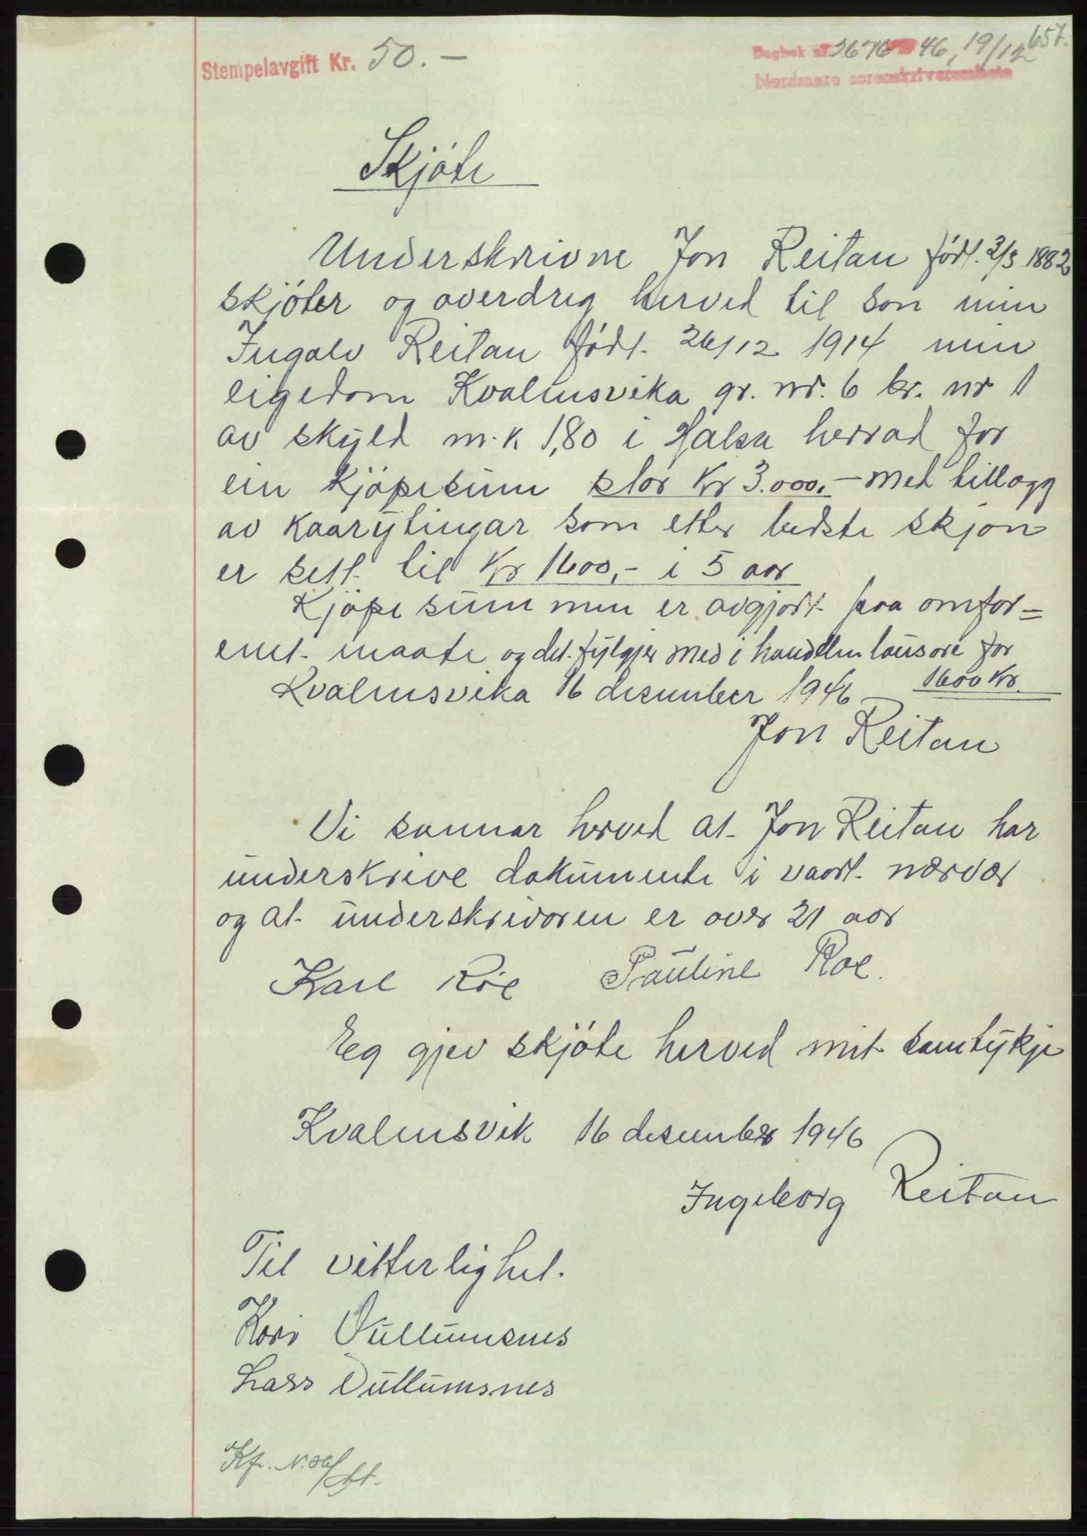 657.
Stempelavgift Kr. 50.-
Dagbok nr. 2676 46, 19/12
Nordmøre sorenskriverembete
Skjöte
Underskrivne Jon Reitan født. 2/3 1882
skjöter og overdreg herved til son min
Ingalv Reitan født. 26/12 1914 min
eigedom Kvalmsvika gr. nr. 6 br. nr 1
av skyld m.k 1,80 i Halsa herrad for
ein kjöpesum stor Kr 3.000,- med tillegg
av kaarytingar som etter bedste skjön
er sett til Kr 1600,- i 5 aar
Kjöpesummen er avgjort paa omfor=
enet maate og det fylgjer med i handelen lausøre for
1600 Kr.
Kvalmsvika 16 desember 1946
Jon Reitan
Vi sannar herved at Jon Reitan har
underskrive dokumente i vaart nærvær
og at underskrivaren er over 21 aar
Karl Röe Pauline Röe.
Eg gjev skjöte herved mit samtykje
Kvalmsvik 16 desember 1946
Ingeborg Reitan
Til vitterlighet.
Kari Vullumsnes
Lars Vullumsnes
Kfr.